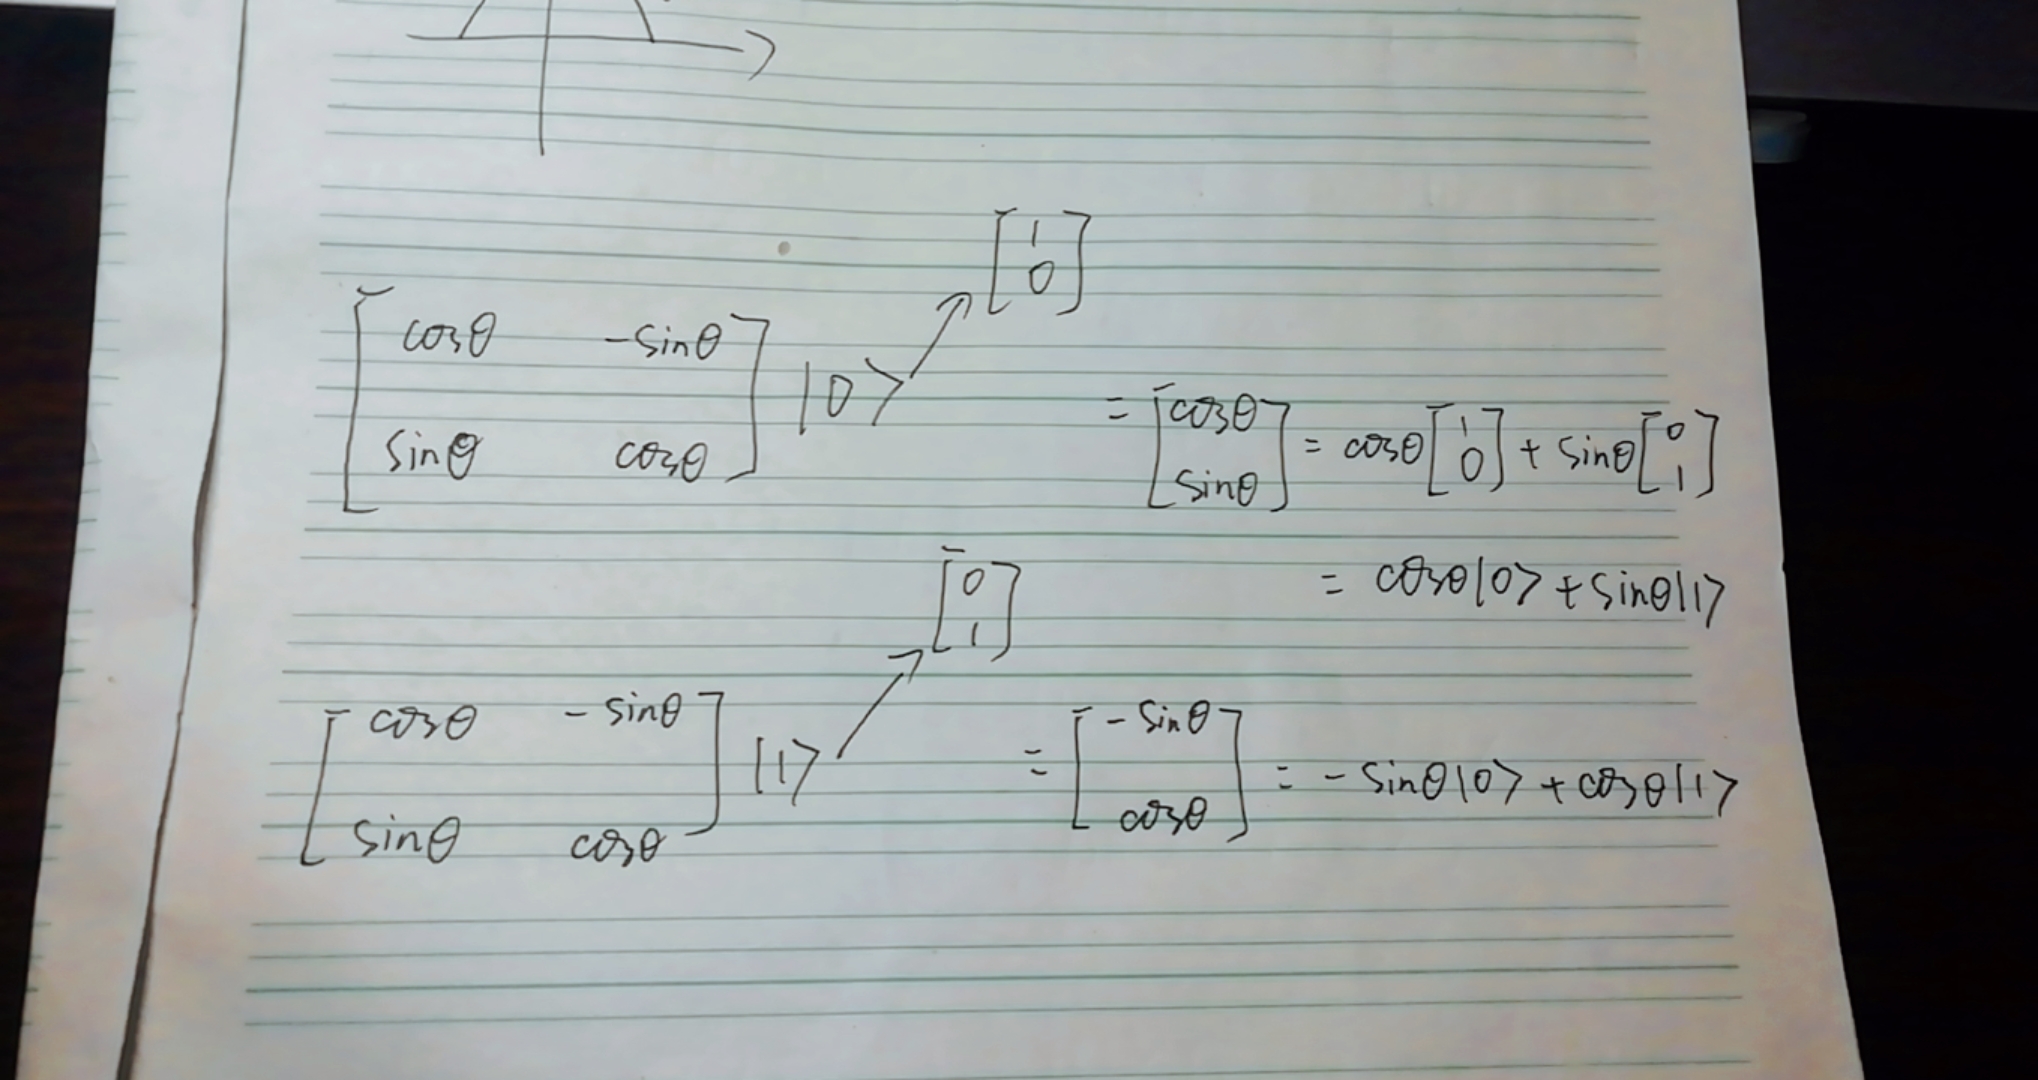 [1
0]
[cosθ -sinθ
sinθ cosθ] |0⟩ = [cosθ
sinθ] = cosθ[1
0] + sinθ[0
1]
= cosθ|0⟩ + sinθ|1⟩
[0
1]
[cosθ -sinθ
sinθ cosθ] |1⟩ = [-sinθ
cosθ] = -sinθ|0⟩ + cosθ|1⟩